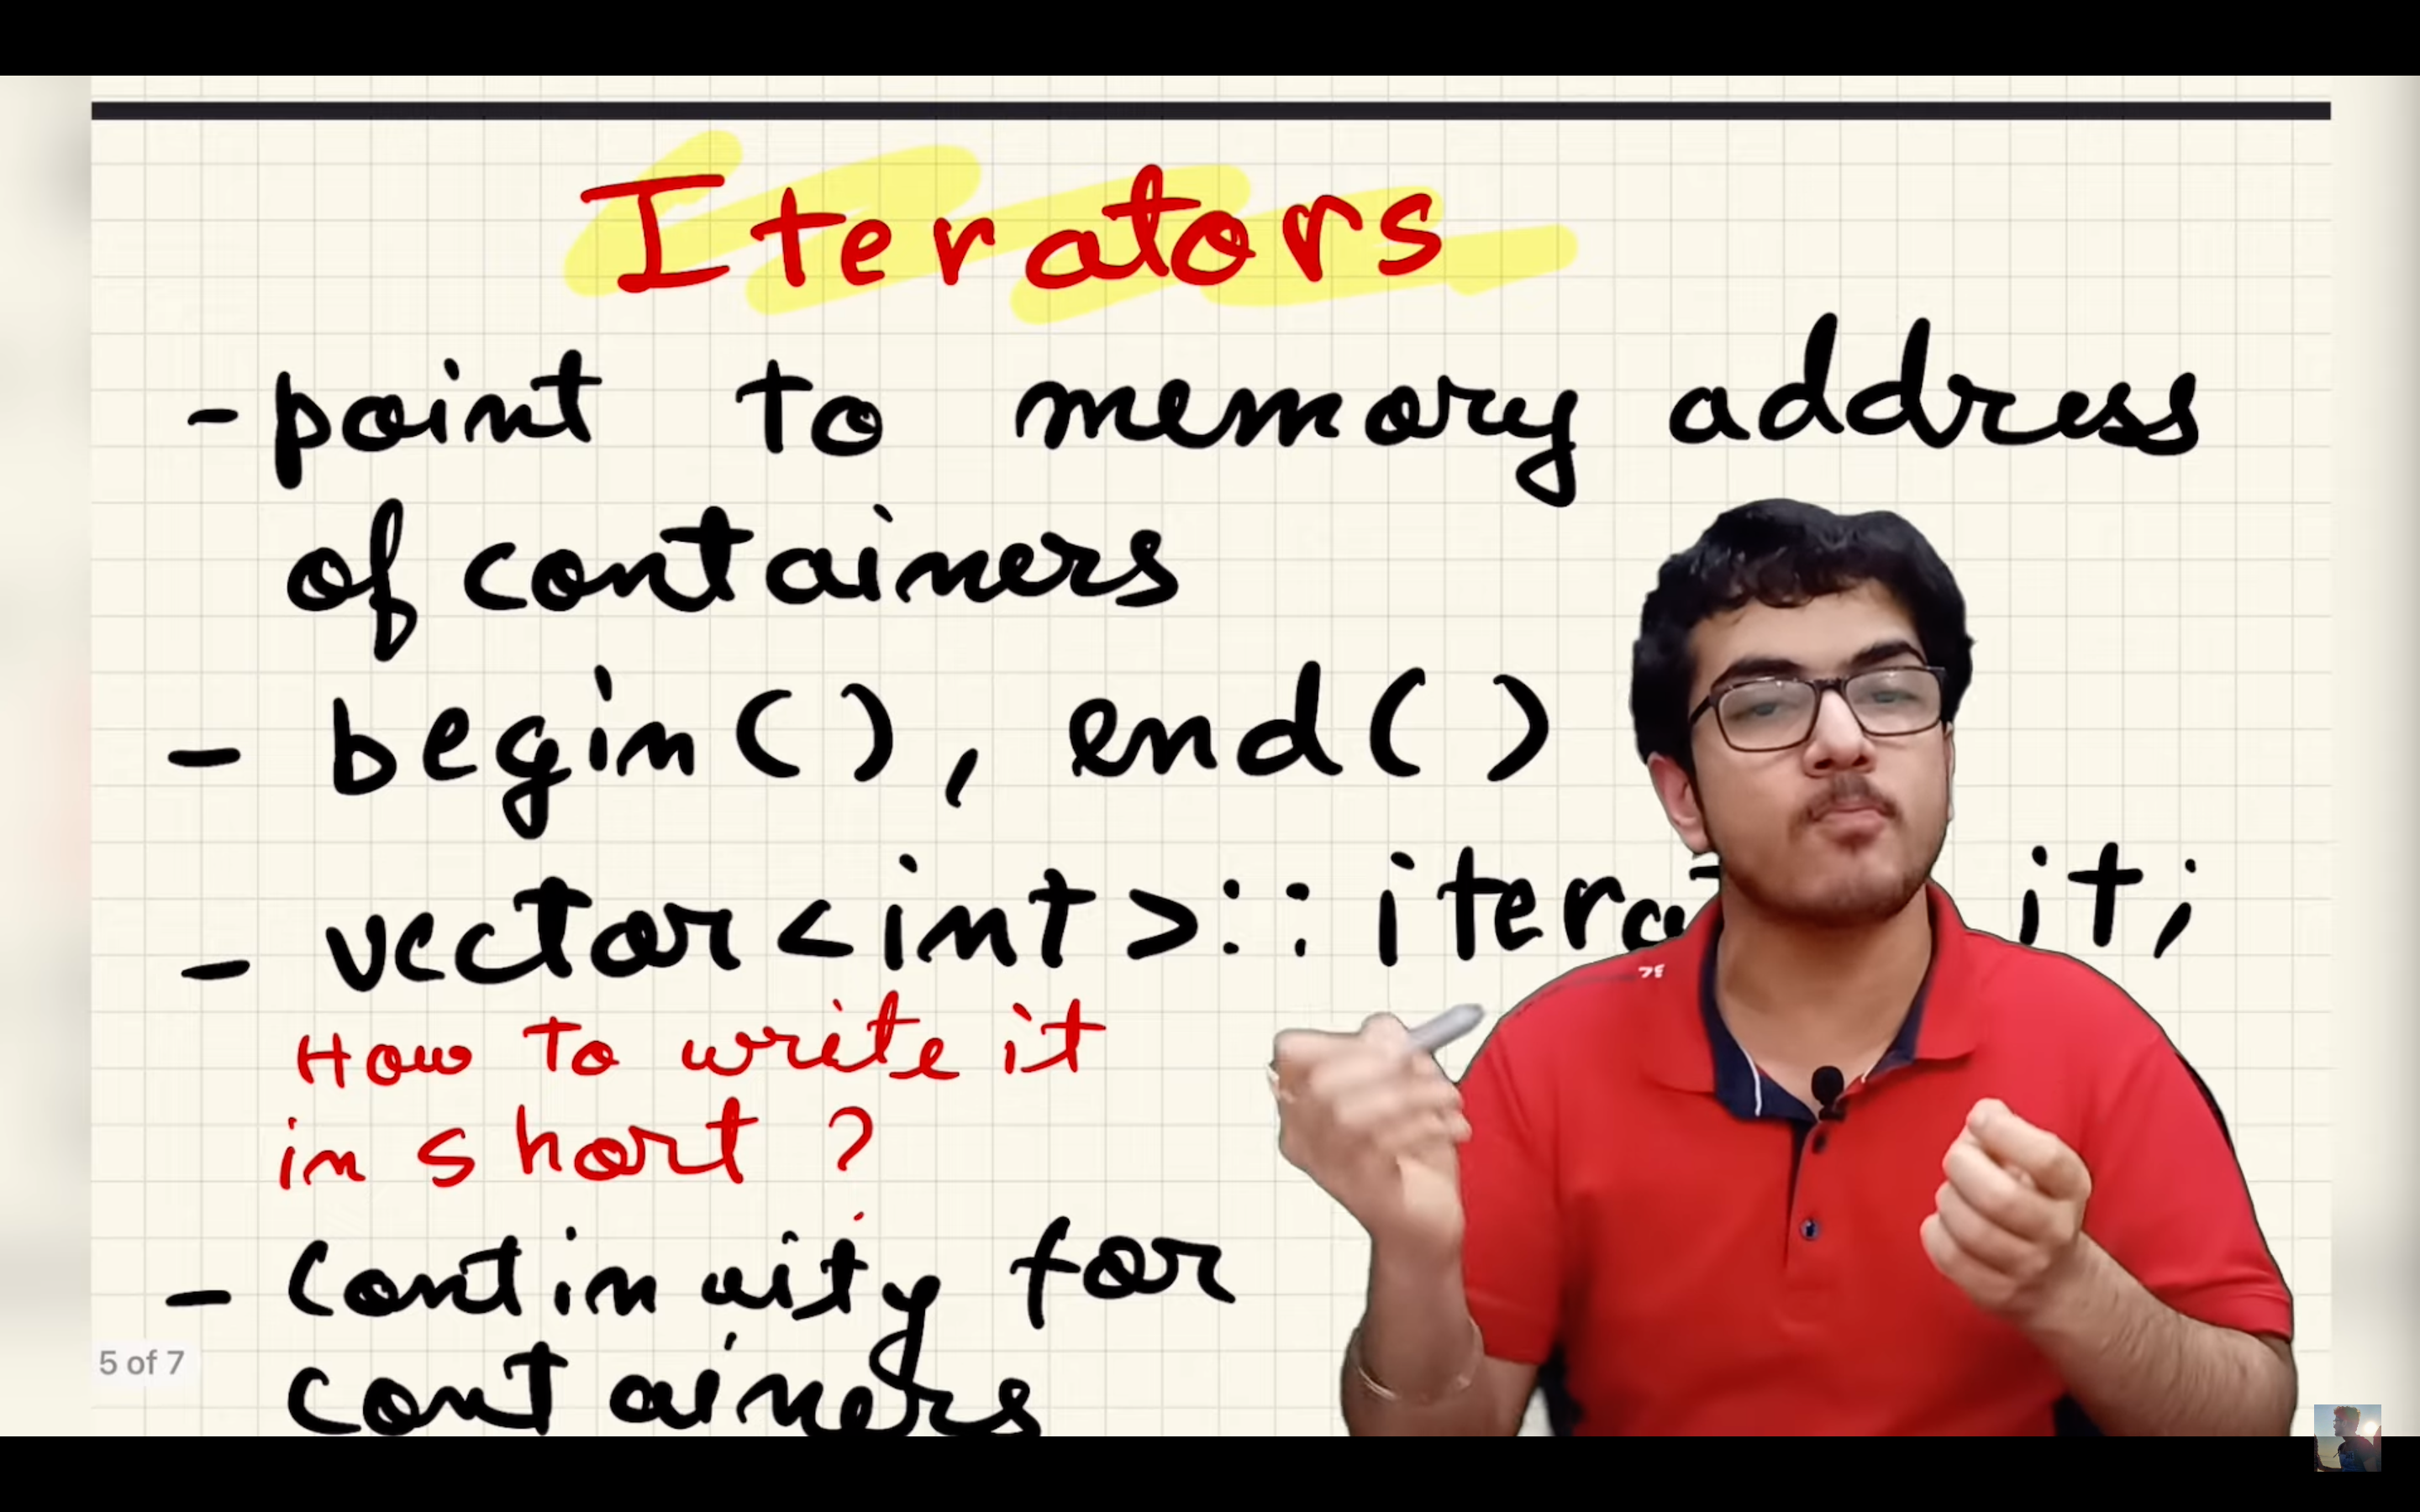 Iterators
- point to memory address
of containers
- begin(), end()
- vector<int>:: it;
How to write it
in short ?
- Continuity for
containers
5 of 7